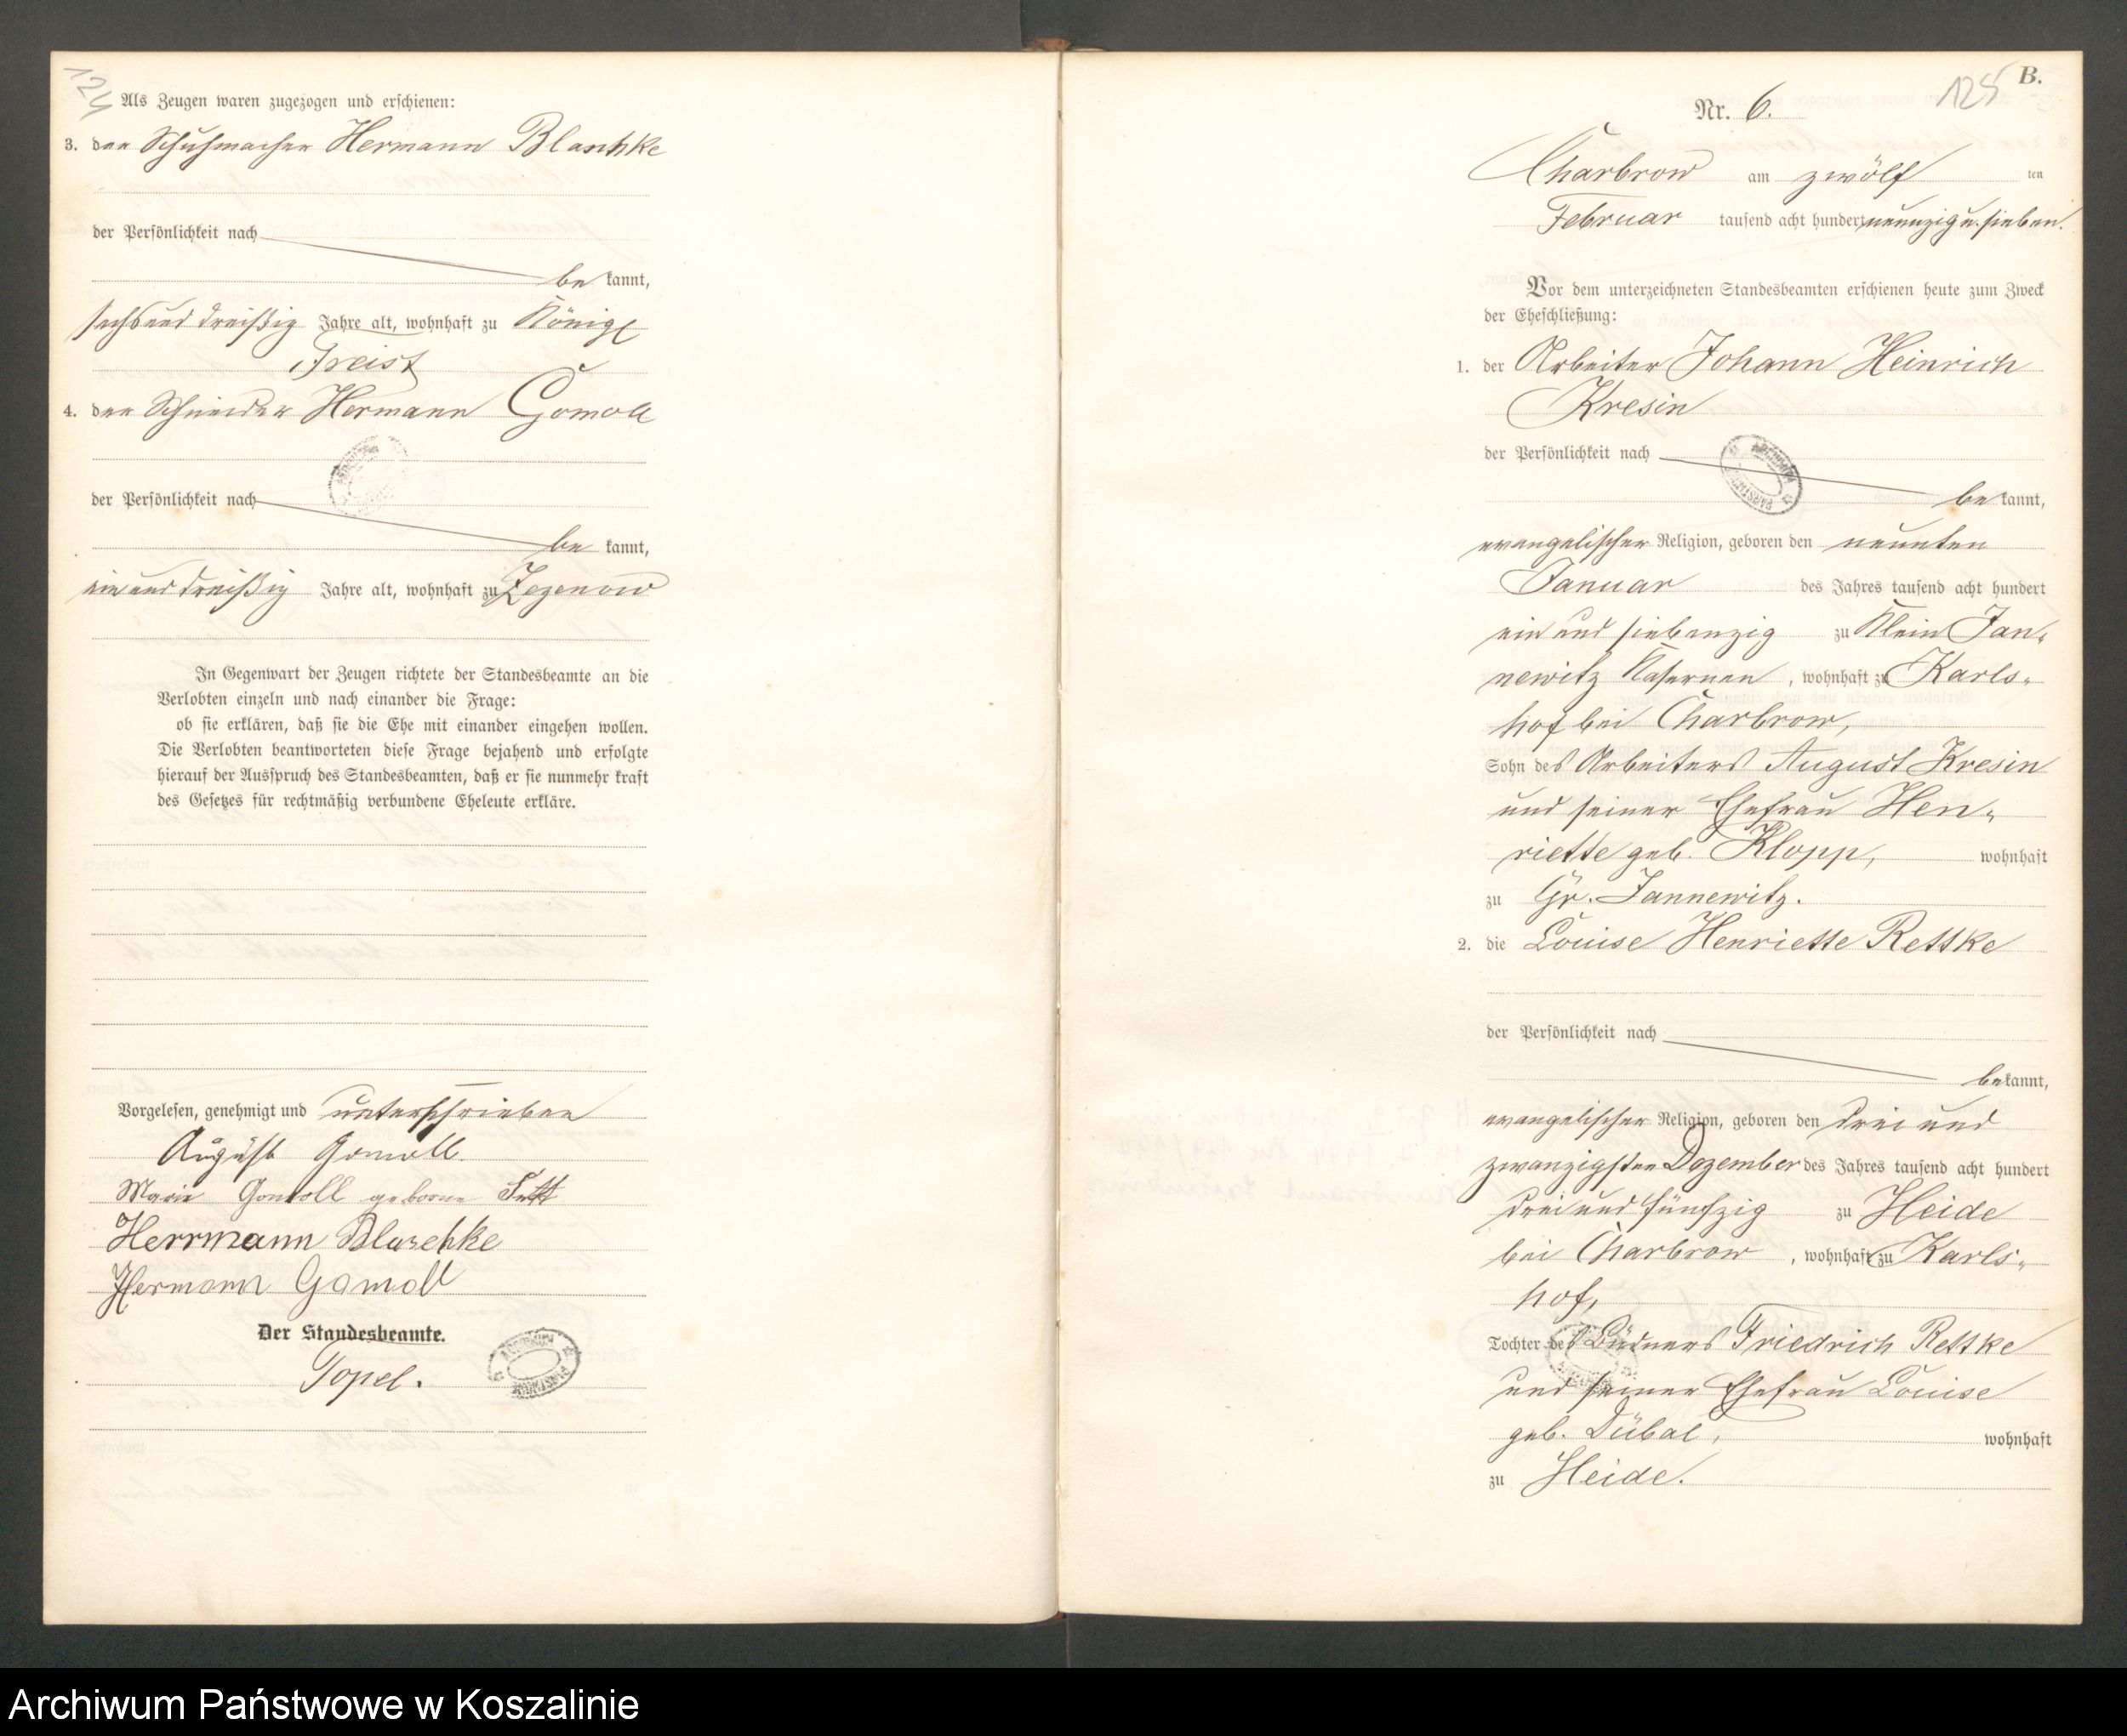 124
Als Zeugen waren zugezogen und erschienen:
3. der Schuhmacher Hermann Blaschke
der Persönlichkeit nach
be kannt,
sechsunddreißig Jahre alt, wohnhaft zu Königl
Freist
4. der Schneider Hermann Gomoll
der Persönlichkeit nach
be kannt,
einunddreißig Jahre alt, wohnhaft zu Zezenow
In Gegenwart der Zeugen richtete der Standesbeamte an die
Verlobten einzeln und nach einander die Frage:
ob sie erklären, daß sie die Ehe mit einander eingehen wollen.
Die Verlobten beantworteten diese Frage bejahend und erfolgte
hierauf der Ausspruch des Standesbeamten, daß er sie nunmehr kraft
des Gesetzes für rechtmäßig verbundene Eheleute erkläre.
Vorgelesen, genehmigt und unterschrieben
August Gomoll
Marie Gomoll geborne
Herrmann Blaschke
Hermann Gomoll
Der Standesbeamte.
Topel.
B.
125
Nr. 6.
Charbrow am zwölf ten
Februar tausend acht hundert neunzig u. sieben.
Vor dem unterzeichneten Standesbeamten erschienen heute zum Zweck
der Eheschließung:
1. der Arbeiter Johann Heinrich
Kresin
der Persönlichkeit nach
be kannt,
evangelischer Religion, geboren den neunten
Januar des Jahres tausend acht hundert
ein und siebenzig zu Klein Jan-
newitz Kasernen, wohnhaft zu Karls-
hof bei Charbrow,
Sohn des Arbeiters August Kresin
und seiner Ehefrau Hen-
riette geb. Klopp, wohnhaft
zu Gr. Jannewitz.
2. die Louise Henriette Rettke
der Persönlichkeit nach
be kannt,
evangelischer Religion, geboren den drei und
zwanzigsten Dezember des Jahres tausend acht hundert
drei und fünfzig zu Heide
bei Charbrow, wohnhaft zu Karls-
hof,
Tochter des Büdners Friedrich Rettke
und seiner Ehefrau Louise
geb. Dübal, wohnhaft
zu Heide.
Archiwum Państwowe w Koszalinie